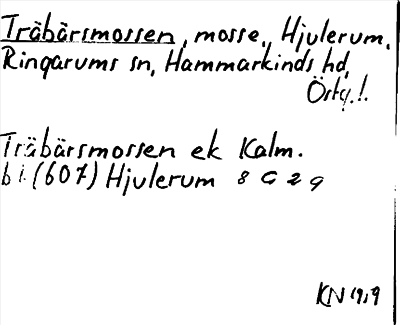 Träbärsmossen, mosse, Hjulerum,
Ringarums sn, Hammarkinds hd,
Östg.!.
Träbärsmossen ek Kalm.
bl. (607) Hjulerum 8 G 2 g
KN 1919